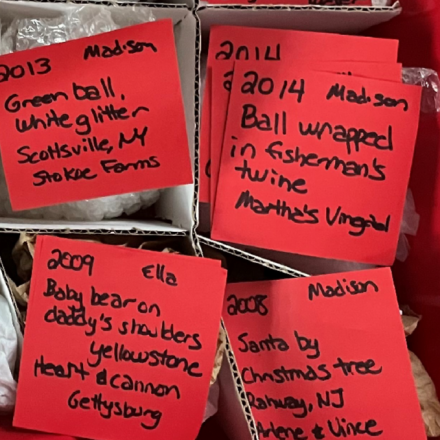 2013 Madison
Green ball,
white glitter
Scottsville, NY
Stokoe Farms
2014
2
2014 Madison
Ball wrapped
in fisherman's
twine
Martha's Vingrad
2009 Ella
Baby bear on
daddy's shoulders
yellowstone
Heart & cannon
Gettysburg
2008 Madison
Santa by
Christmas tree
Rahway, NJ
Arlene & Vince